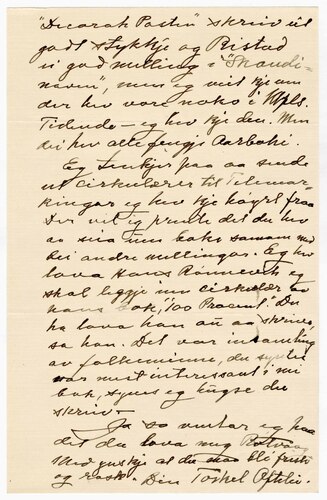 "Decorah Posten" skreiv eit
godt stykkje og Ristad
ei god melding i "Skandi-
naven", men eg veit kje um
der hev vore noko i Mpls.
Tidende — eg hev kje den. Men
dei hev alle fenge Aarboki.
Eg tenkjer paa aa sende
ut cirkulærer til Telemar-
kingar eg hev kje høyrt fraa
Der vil eg prente det du hev
aa sia um boka saman med
dei andre meldingar. Eg hev
lova Hans Rønnevik eg
skal leggje inn cirkulær av
hans bok, "100 Procent." Du
ha lova han au aa skriva,
sa han. Det var innsamling
av folkeminne, du syntes
var mest interessant i mi
bok, synes eg hugse du
skreiv.
Ja so ventar eg paa
det du lova meg
Med ynskje at du maa bli frisk
og rask. Din Torkel Oftelie.